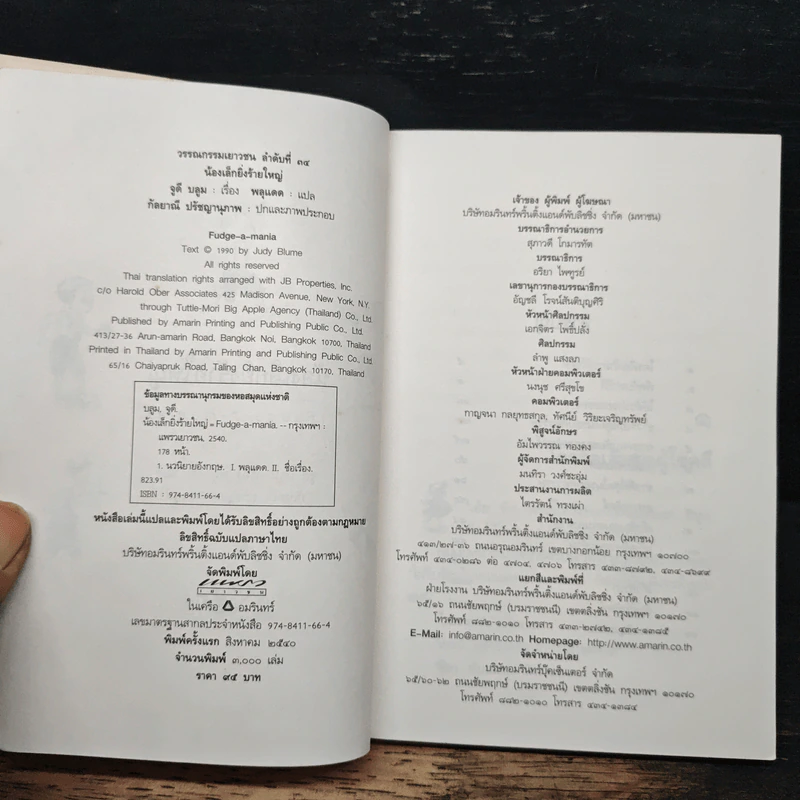 วรรณกรรมเยาวชน ลำดับที่ ๓๔
น้องเล็กยิ่งร้ายใหญ่
จูดี บลูม : เรื่อง พลุแดด : แปล
กัลยาณี ปรัชญานุภาพ : ปกและภาพประกอบ
Fudge-a-mania
Text © 1990 by Judy Blume
All rights reserved
Thai translation rights arranged with JB Properties, Inc.
c/o Harold Ober Associates 425 Madison Avenue, New York, N.Y.
through Tuttle-Mori Big Apple Agency (Thailand) Co., Ltd.
Published by Amarin Printing and Publishing Public Co., Ltd.
413/27-36 Arun-amarin Road, Bangkok Noi, Bangkok 10700, Thailand
Printed in Thailand by Amarin Printing and Publishing Public Co., Ltd.
65/16 Chaiyapruk Road, Taling Chan, Bangkok 10170, Thailand
ข้อมูลทางบรรณานุกรมของหอสมุดแห่งชาติ
บลูม, จูดี.
น้องเล็กยิ่งร้ายใหญ่ = Fudge-a-mania. -- กรุงเทพฯ :
แพรวเยาวชน, 2540.
178 หน้า.
1. นวนิยายอังกฤษ. I. พลุแดด. II. ชื่อเรื่อง.
823.91
ISBN : 974-8411-66-4
หนังสือเล่มนี้แปลและพิมพ์โดยได้รับลิขสิทธิ์อย่างถูกต้องตามกฎหมาย
ลิขสิทธิ์ฉบับแปลภาษาไทย
บริษัทอมรินทร์พริ้นติ้งแอนด์พับลิชชิ่ง จำกัด (มหาชน)
จัดพิมพ์โดย
แพรว
เยาวชน
ในเครือ อมรินทร์
เลขมาตรฐานสากลประจำหนังสือ 974-8411-66-4
พิมพ์ครั้งแรก สิงหาคม ๒๕๔๐
จำนวนพิมพ์ ๓,๐๐๐ เล่ม
ราคา ๙๕ บาท
เจ้าของ ผู้พิมพ์ ผู้โฆษณา
บริษัทอมรินทร์พริ้นติ้งแอนด์พับลิชชิ่ง จำกัด (มหาชน)
บรรณาธิการอำนวยการ
สุภาวดี โกมารทัต
บรรณาธิการ
อริยา ไพฑูรย์
เลขานุการกองบรรณาธิการ
อัญชลี โรจน์สันติบุญศิริ
หัวหน้าศิลปกรรม
เอกจิตร โพธิ์ปลั่ง
ศิลปกรรม
ลำพู แสงลภ
หัวหน้าฝ่ายคอมพิวเตอร์
นงนุช ศรีสุขโข
คอมพิวเตอร์
กาญจนา กลยุทธสกุล, ทัศนีย์ วิริยะเจริญทรัพย์
พิสูจน์อักษร
อัมไพวรรณ ทองคง
ผู้จัดการสำนักพิมพ์
มนทิรา วงศ์ชะอุ่ม
ประสานงานการผลิต
ไตรรัตน์ ทรงเผ่า
สำนักงาน
บริษัทอมรินทร์พริ้นติ้งแอนด์พับลิชชิ่ง จำกัด (มหาชน)
๔๑๓/๒๗-๓๖ ถนนอรุณอมรินทร์ เขตบางกอกน้อย กรุงเทพฯ ๑๐๗๐๐
โทรศัพท์ ๔๓๔-๐๒๘๖ ต่อ ๔๗๐๔, ๔๗๐๖ โทรสาร ๔๓๓-๘๗๙๒, ๔๓๔-๘๖๙๙
แยกสีและพิมพ์ที่
ฝ่ายโรงงาน บริษัทอมรินทร์พริ้นติ้งแอนด์พับลิชชิ่ง จำกัด (มหาชน)
๖๕/๑๖ ถนนชัยพฤกษ์ (บรมราชชนนี) เขตตลิ่งชัน กรุงเทพฯ ๑๐๑๗๐
โทรศัพท์ ๘๘๒-๑๐๑๐ โทรสาร ๔๓๓-๒๗๔๒, ๔๓๔-๑๓๘๕
E-Mail: info@amarin.co.th Homepage: http://www.amarin.co.th
จัดจำหน่ายโดย
บริษัทอมรินทร์บุ๊คเซ็นเตอร์ จำกัด
๖๕/๖๐-๖๒ ถนนชัยพฤกษ์ (บรมราชชนนี) เขตตลิ่งชัน กรุงเทพฯ ๑๐๑๗๐
โทรศัพท์ ๘๘๒-๑๐๑๐ โทรสาร ๔๓๔-๑๓๘๔